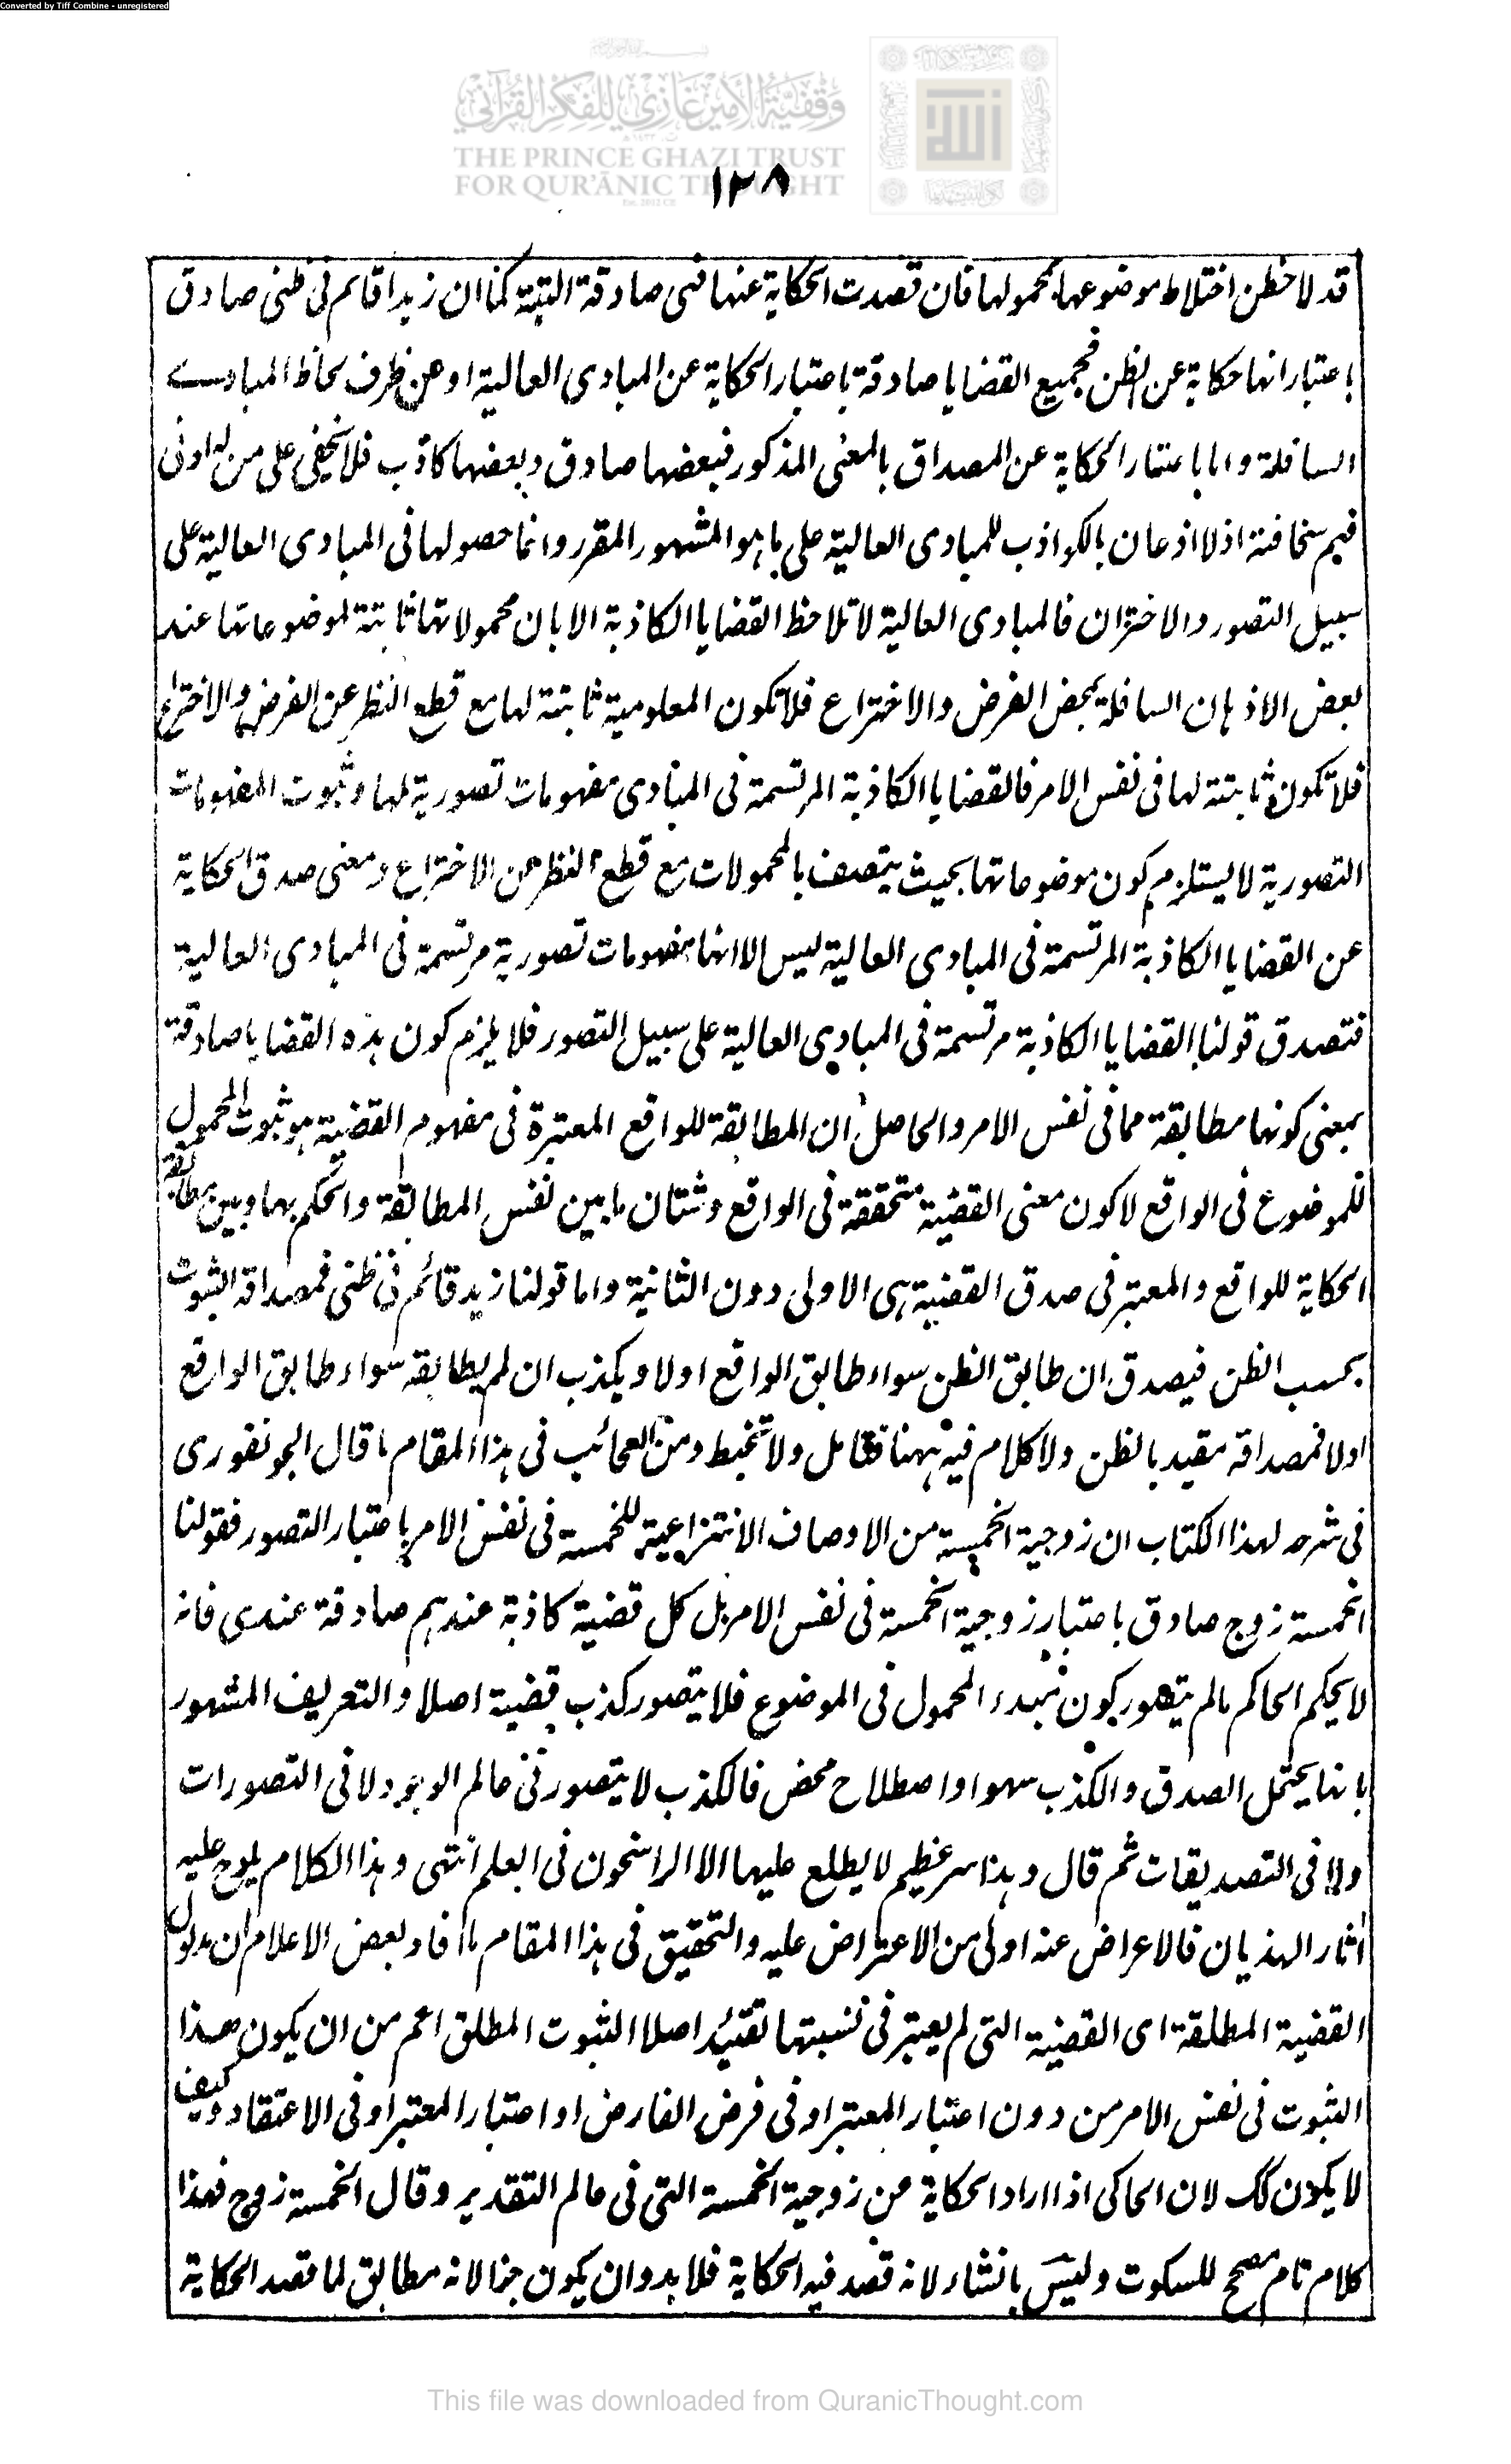 Converted by Tiff Combine - unregistered
وقفية الأمير غازي للفكر القرآني
THE PRINCE GHAZI TRUST
FOR QUR'ĀNIC THOUGHT
١٢٨
قد لاحظن اختلاط موضوعها بمحمولها فان قصدت الحكاية عنها فهى صادقة البتة كما ان زيدا قائم فى ظنى صادق
باعتبار انها حكاية عن الظن فجميع القضايا صادقة باعتبار الحكاية عن المبادى العالية او عن ظرف لحاظ المبادى
السافلة واما باعتبار الحكاية عن المصداق بالمعنى المذكور فبعضها صادق وبعضها كاذب فلا يخفى على من له ادنى
فهم سخافته اذ لا اذعان بالكواذب للمبادى العالية على ما هو المشهور المقرر وانما حصولها فى المبادى العالية على
سبيل التصور والاختزان فالمبادى العالية لا تلاحظ القضايا الكاذبة الا بان محمولاتها ثابتة لموضوعاتها عند
بعض الاذهان السافلة بمحض الفرض والاختراع فلا تكون المعلومية ثابتة لها مع قطع النظر عن الفرض والاختراع
فلا تكون ثابتة لها فى نفس الامر فالقضايا الكاذبة المرتسمة فى المبادى مفهومات تصورية لها وثبوت المفهومات
التصورية لا يستلزم كون موضوعاتها بحيث يتصف بالمحمولات مع قطع النظر عن الاختراع ومعنى صدق الحكاية
عن القضايا الكاذبة المرتسمة فى المبادى العالية ليس الا انها مفهومات تصورية مرتسمة فى المبادى العالية
فتصدق قولنا القضايا الكاذبة مرتسمة فى المبادى العالية على سبيل التصور فلا يلزم كون هذه القضايا صادقة
بمعنى كونها مطابقة مما فى نفس الامر والحاصل ان المطابقة للواقع المعتبرة فى مفهوم القضية هو ثبوت المحمول
للموضوع فى الواقع لا كون معنى القضية متحققة فى الواقع وشتان ما بين نفس المطابقة والحكم بها وبين مطابقة
الحكاية للواقع والمعتبر فى صدق القضية هى الاولى دون الثانية واما قولنا زيد قائم فى ظنى فمصداقه الثبوت
بحسب الظن فيصدق ان طابق الظن سواء طابق الواقع اولا ويكذب ان لم يطابقه سواء طابق الواقع
اولا فمصداقه مقيد بالظن ولا كلام فيه ههنا فتامل ولا تخبط ومن العجائب فى هذا المقام ما قال الجونفورى
فى شرحه لهذا الكتاب ان زوجية الخمسة من الاوصاف الانتزاعية للخمسة فى نفس الامر باعتبار التصور فقولنا
الخمسة زوج صادق باعتبار زوجية الخمسة فى نفس الامر بل كل قضية كاذبة عندهم صادقة عندى فانه
لا يحكم الحاكم ما لم يتصور كون مبدء المحمول فى الموضوع فلا يتصور كذب قضية اصلا والتعريف المشهور
بانها يحتمل الصدق والكذب سهوا واصطلاح محض فالكذب لا يتصور فى عالم الوجود لا فى التصورات
ولا فى التصديقات ثم قال وهذا سر عظيم لا يطلع عليها الا الراسخون فى العلم انتهى وهذا الكلام يلوح عليه
آثار الهذيان فالاعراض عنه اولى من الاعتراض عليه والتحقيق فى هذا المقام ما افاد بعض الاعلام ان مدلول
القضية المطلقة اى القضية التى لم يعتبر فى نسبتها تقييد اصلا الثبوت المطلق اعم من ان يكون هذا
الثبوت فى نفس الامر من دون اعتبار المعتبر او فى فرض الفارض او اعتبار المعتبر او فى الاعتقاد وكيف
لا يكون كك لان الحاكى اذا اراد الحكاية عن زوجية الخمسة التى فى عالم التقدير وقال الخمسة زوج فهذا
كلام تام مصحح للسكوت وليس بانشاء لانه قصد فيه الحكاية فلا بد وان يكون خبرا لانه مطابق لما قصد الحكاية
This file was downloaded from QuranicThought.com